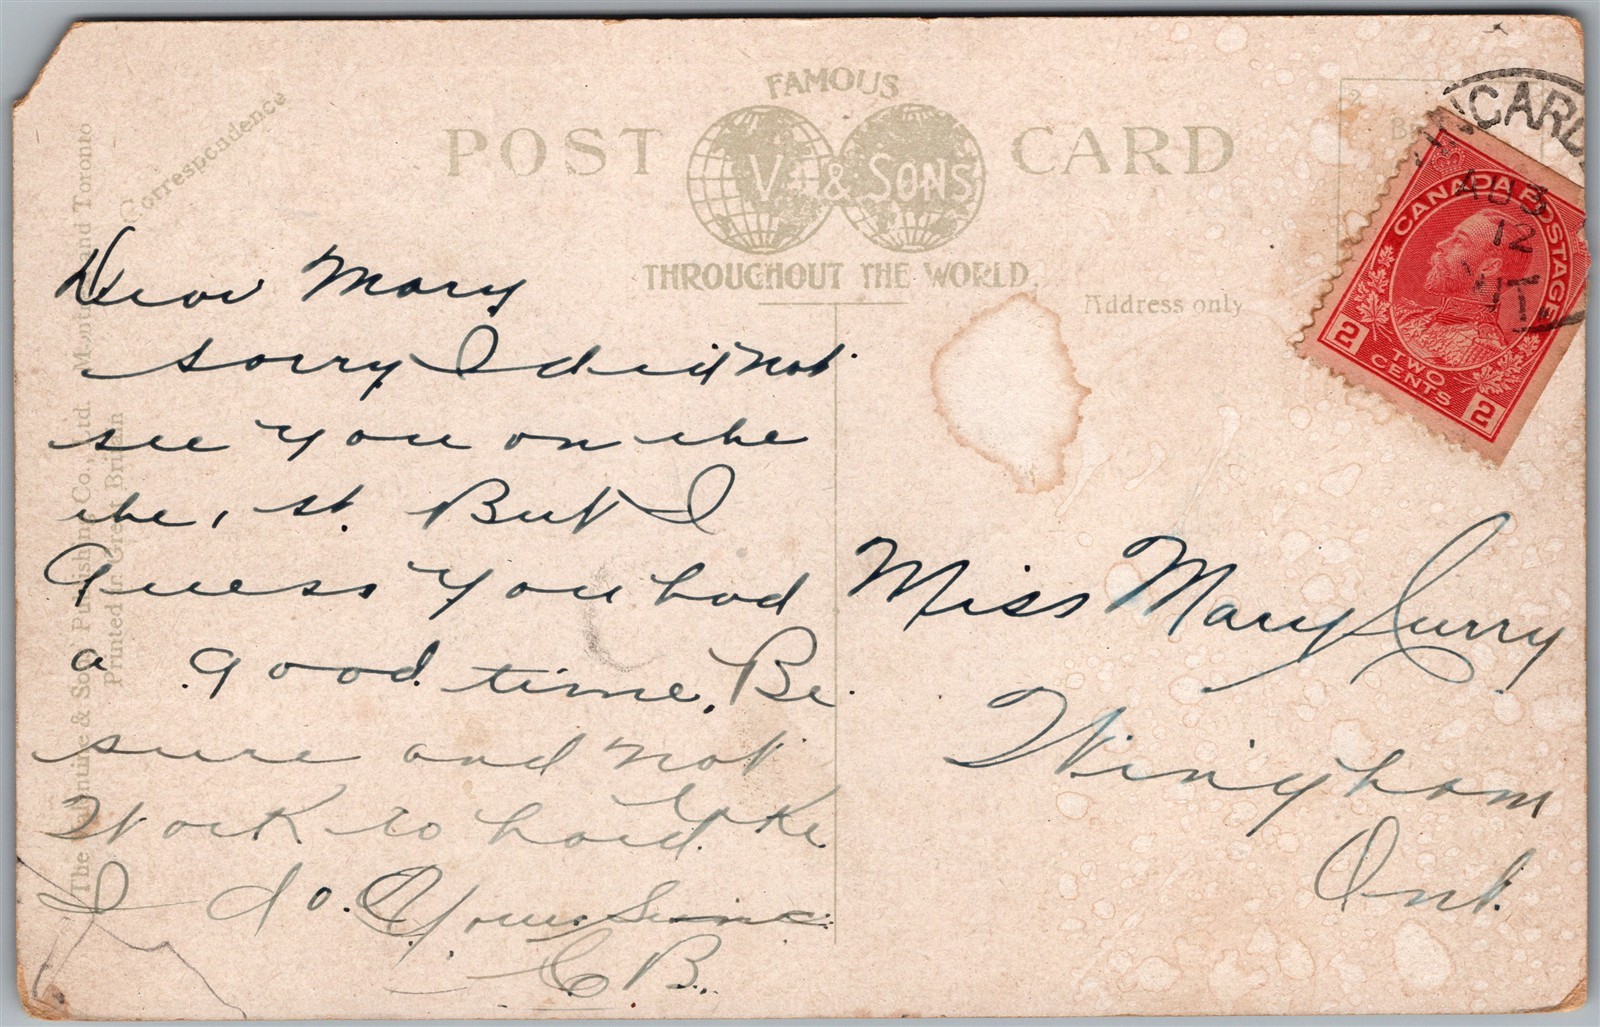 FAMOUS
POST CARD
V. & SONS
THROUGHOUT THE WORLD.
Correspondence
Address only
The Valentine & Sons Publishing Co., Ltd. Montreal and Toronto
Printed in Great Britain
CARD
AU 3
12
CANADA POSTAGE
2 TWO CENTS 2
Dear Mary
sorry I did not
see you on the
the, st. But I
Guess you had
a good time. Be
sure and not
Work to hard. Like
I do. Yours Since
C B.
Miss Mary Curry
Wingham
Ont.